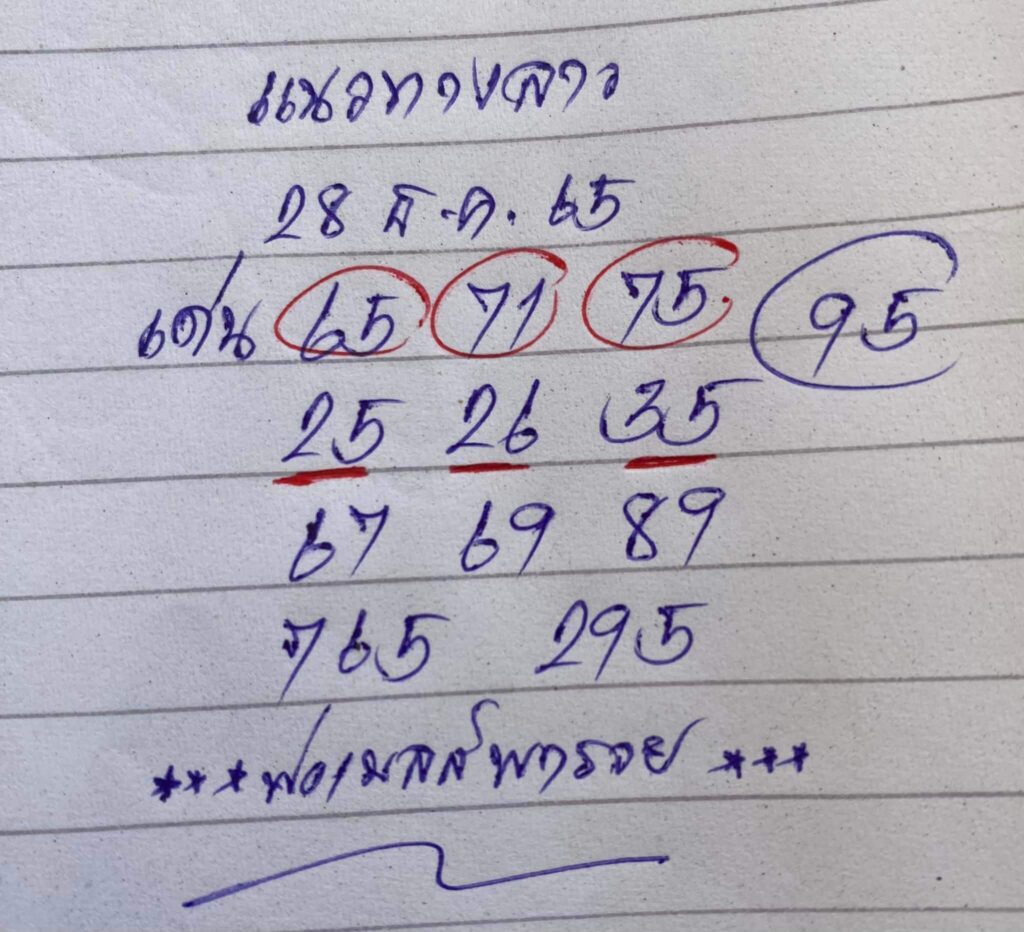 แนวทางลาว
28 ธ.ค. 65
เด่น 65 71 75 95
25 26 35
67 69 89
765 295
***พ่อเมลล์พารวย***